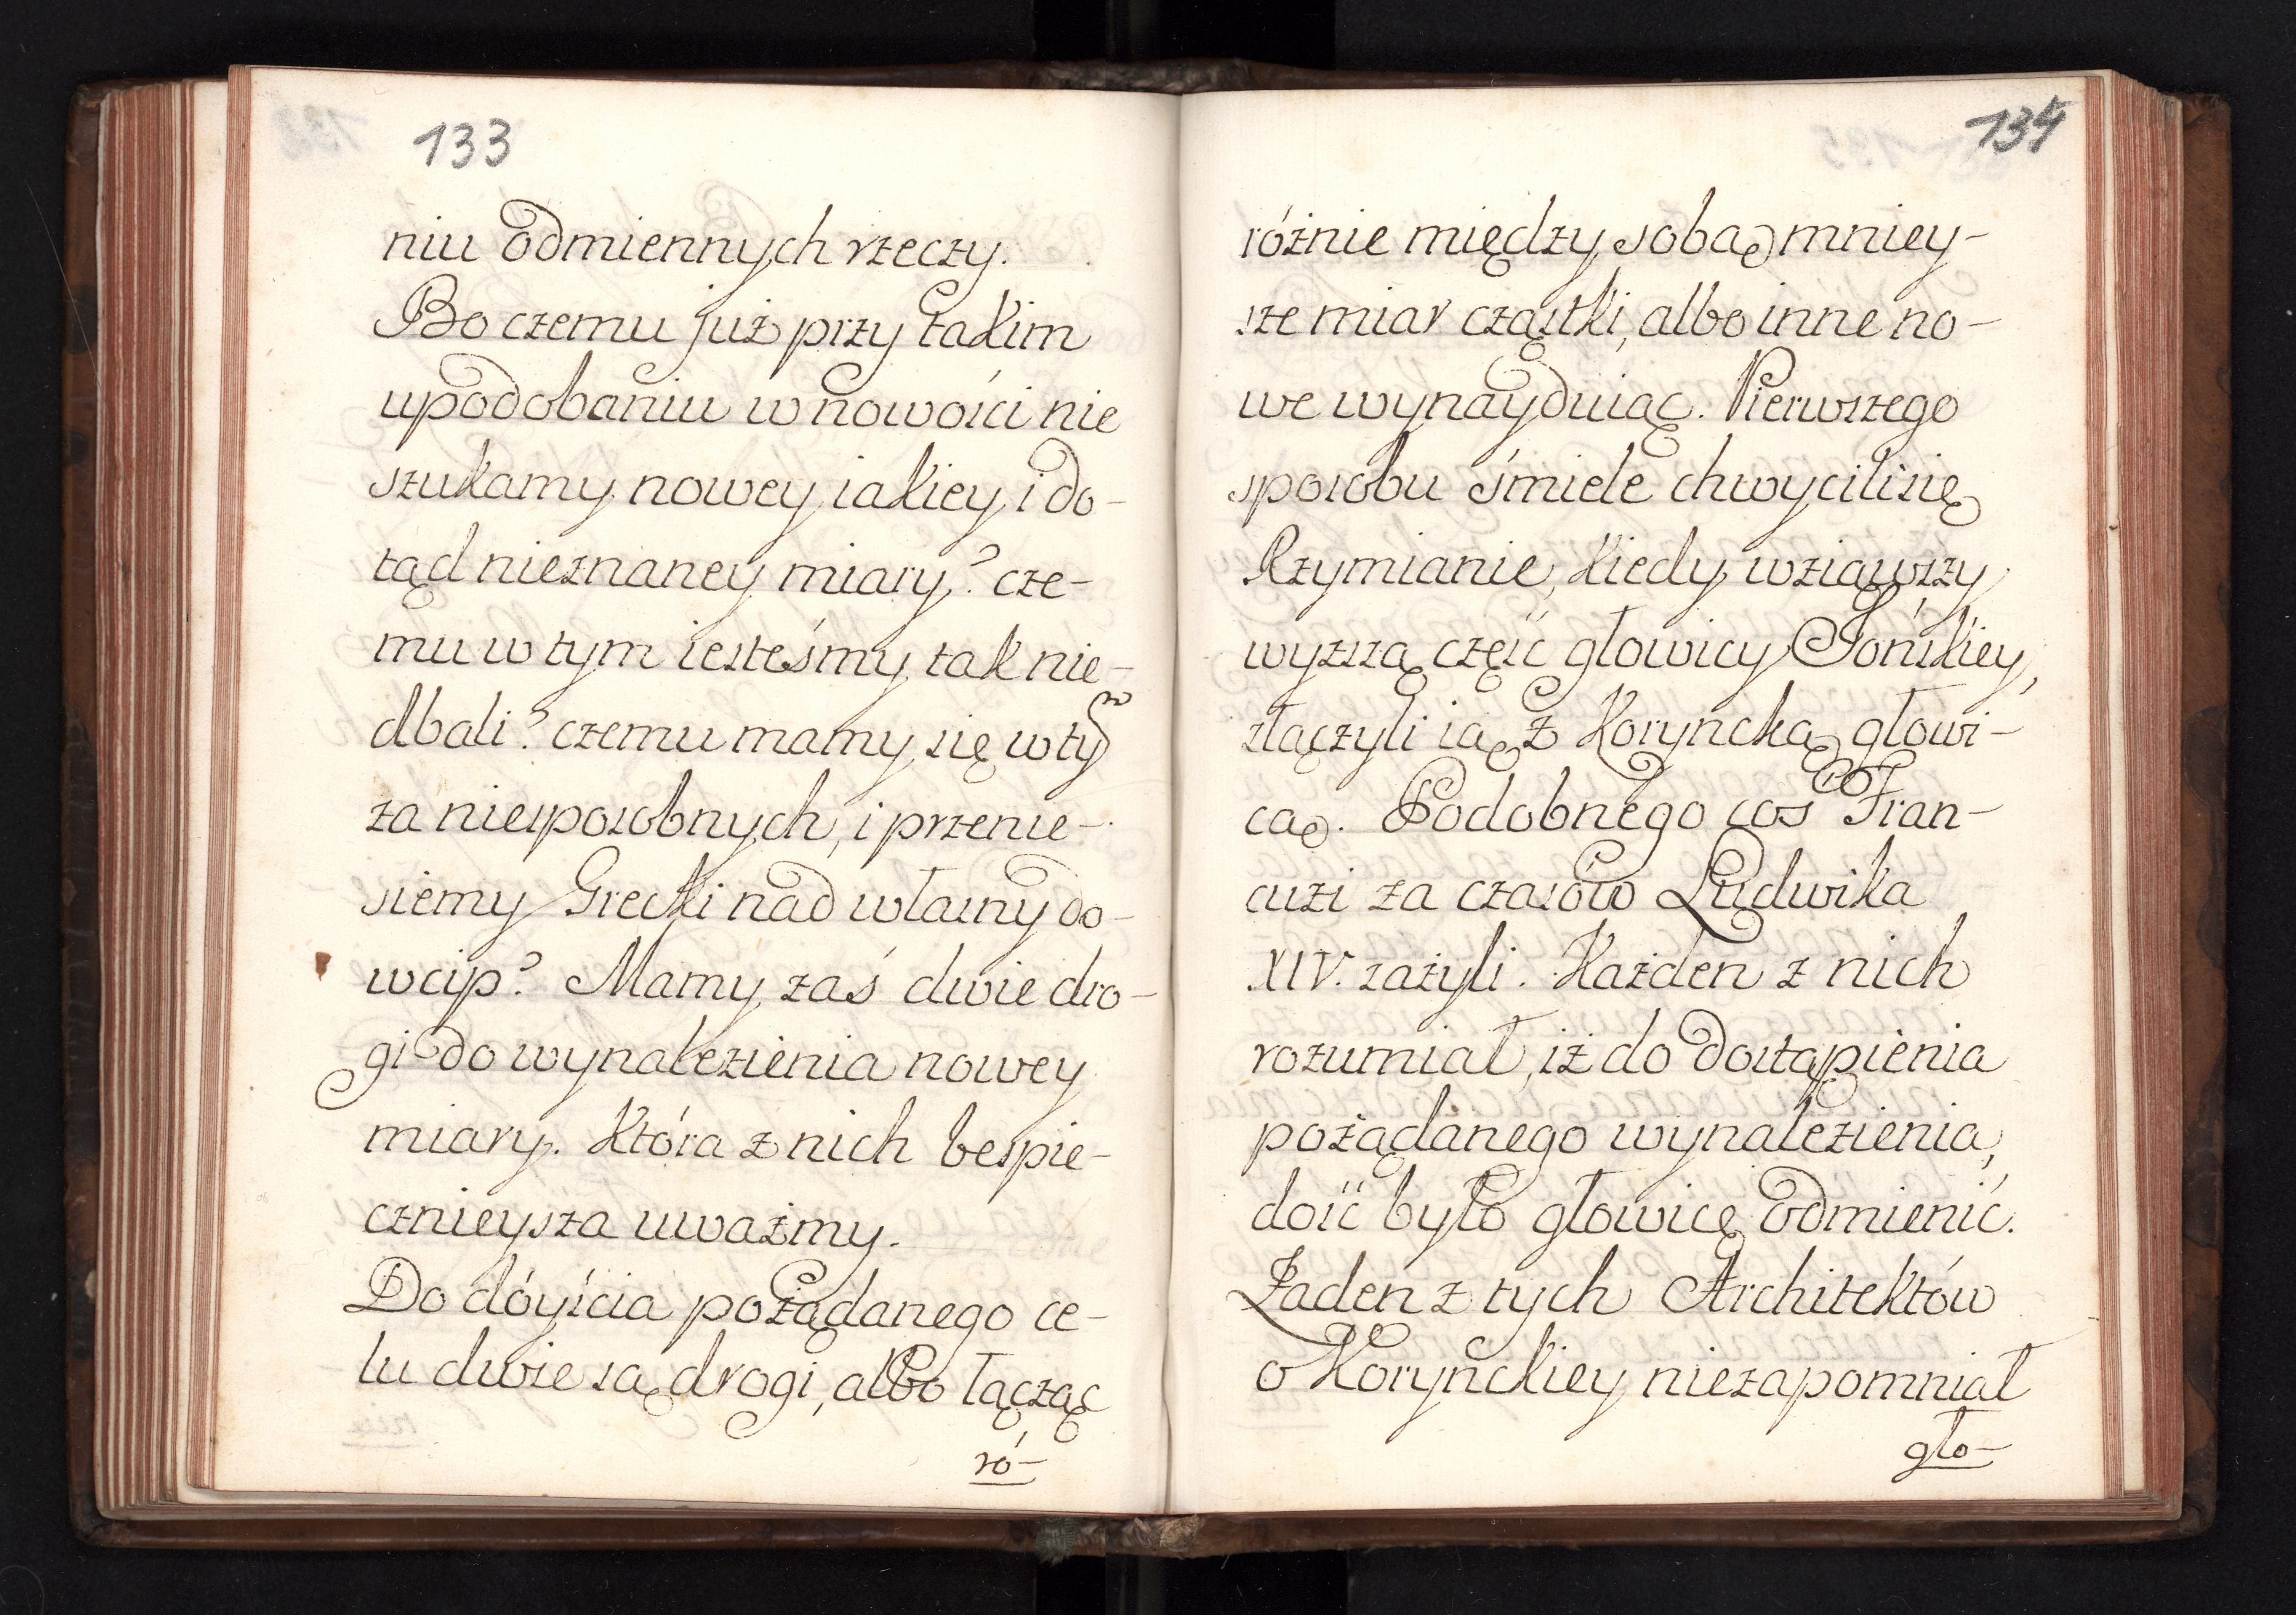 133
niu odmiennych rzeczy.
Bo czemu już przy takim
upodobaniu w nowości nie
szukamy nowey iakiey i do-
tąd nieznaney miary? cze-
mu w tym iesteśmy tak nie-
dbali? czemu mamy się w tym
za niesposobnych, i przenie-
siemy Grecki nad własny do-
wcip? Mamy zaś dwie dro-
gi do wynalezienia nowey
miary. Która z nich bespie-
cznieysza uważmy.
Do dóyścia pożądanego ce-
lu dwie są drogi, albo łącząc
ró-
134
różnie między sobą mniey-
sze miar cząstki, albo inne no-
we wynayduiąc. Pierwszego
sposobu śmiele chwycili się
Rzymianie, kiedy wziąwszy
wyższą część głowicy Jońskiey,
złączyli ią z Koryncką głowi-
cą. Podobnego cos Fran-
cuzi za czasów Ludwika
XIV. zażyli. Każden z nich
rozumiał, iż do dostąpienia
pożądanego wynalezienia,
dość było głowicę odmienić.
Żaden z tych Architektów
o Korynckiey niezapomniał
gło-